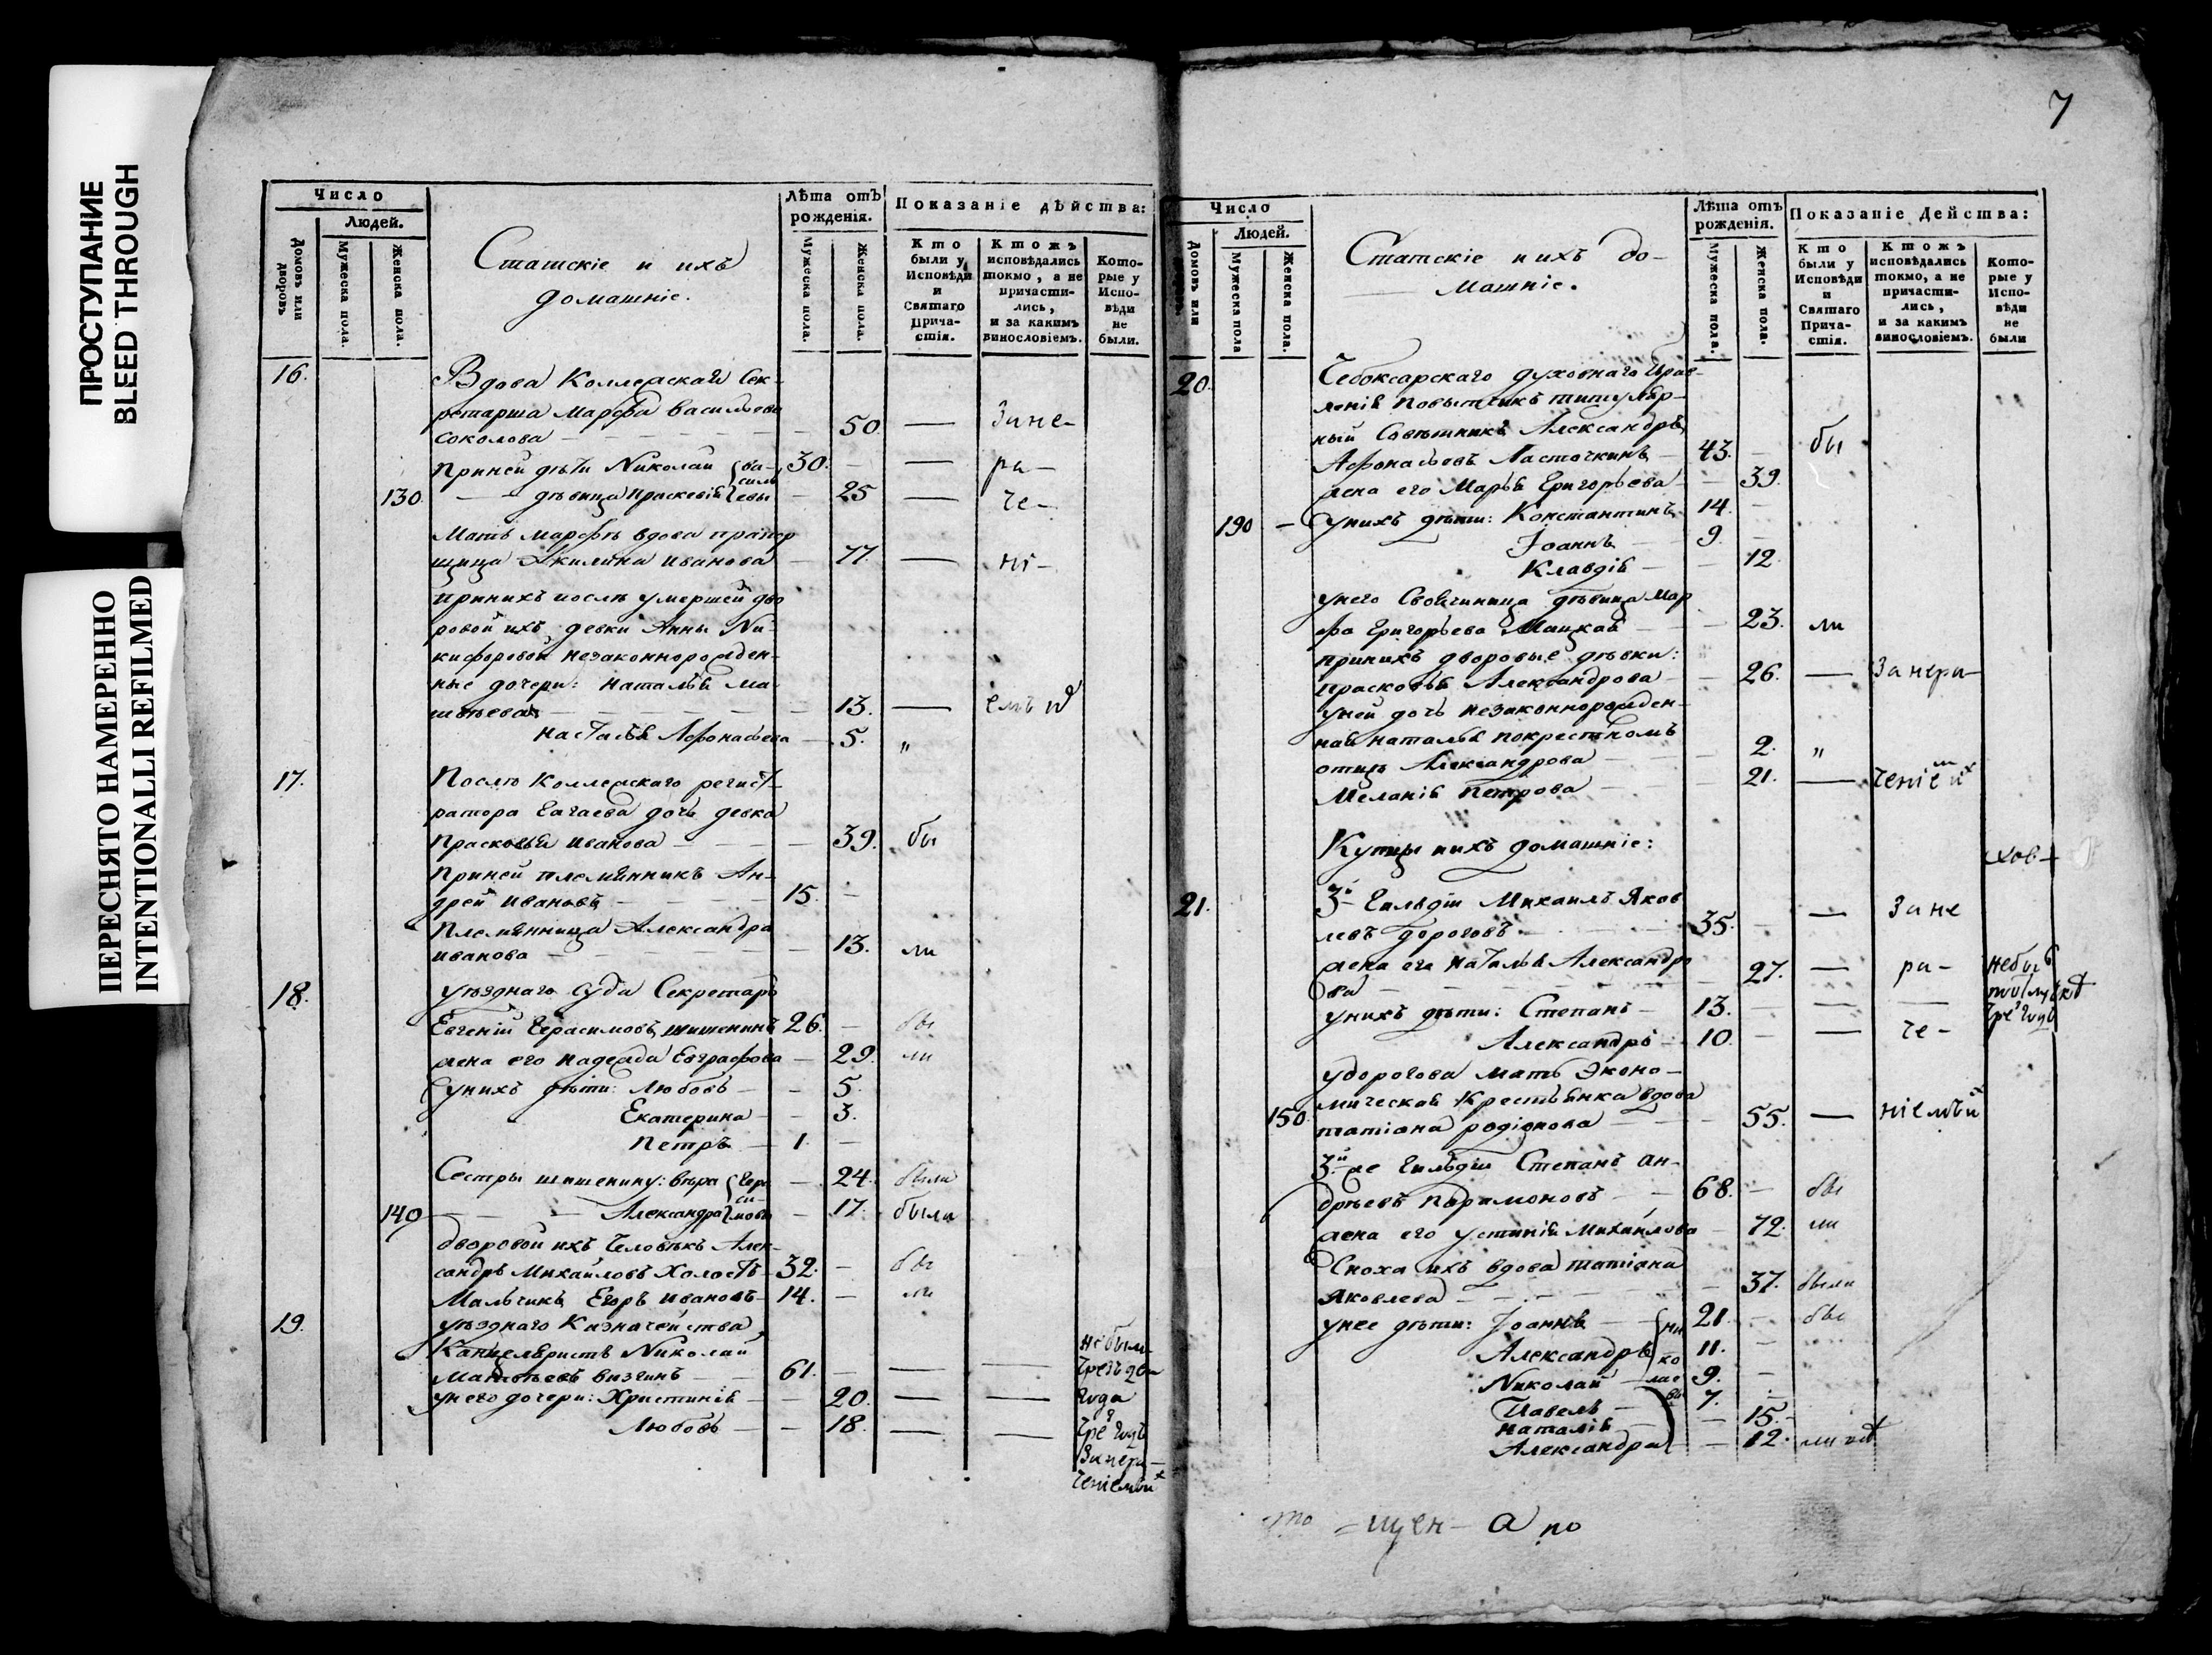 ПРОСТУПАНИЕ
BLEED THROUGH
ПЕРЕСНЯТО НАМЕРЕННО
INTENTIONALLI REFILMED
Число
Людей.
Домовъ или дворовъ
Мужеска пола.
Женска пола.
Статскіе и ихъ
домашніе.
Лѣта отъ
рожденія.
Мужеска пола.
Женска пола.
Показаніе дѣйства:
Кто были у Исповѣди и Святаго Причастія.
Ктожъ исповѣдались токмо, а не причастились, и за какимъ винословіемъ.
Которые у Исповѣди не были.
16.
Вдова Коллежская Сек-
ретарша Марфа Васильева
Соколова 50. Зане-
При ней дѣти Николай 30. ра-
130. дѣвица Праскевія 25 че-
Мать Марфы вдова прапор
щица Акилина Иванова 77. ні-
При нихъ послѣ умершей дво
ровой ихъ девки Анны Ни-
кифоровой незаконнорожден-
ные дочери: Наталья Ма-
твѣева 13. емъ
Настасья Афонасьева 5. "
17. Послѣ Коллежскаго регист-
ратора дочь девка
Прасковья Иванова 39. бы
При ней племянникъ Ан-
дрей Ивановъ 15.
Племянница Александра
Иванова 13. ли
18. Уѣзднаго Суда Секретарь
Евгеній Герасимовъ Шишенинъ 26. бы
жена его Надежда Евграфова 29. ли
У нихъ дѣти: Любовь 5.
Екатерина 3.
Петръ 1.
Сестры Шишенину: Вѣра 24. были
140 Александра 17. были
Дворовой ихъ Человѣкъ Алек-
сандръ Михайловъ Холостъ 32. бы
Мальчикъ Егоръ Ивановъ 14. ли
19. Уѣзднаго Казначейства
Канцеляристъ Николай
Матвѣевъ Визгинъ 61.
У него дочери: Христинія 20. года
Любовь 18.
7
Число
Людей.
Домовъ или
Мужеска пола
Женска пола.
Статскіе и ихъ до-
машніе.
Лѣта отъ
рожденія.
Мужеска пола.
Женска пола.
Показаніе Действа:
Кто были у Исповѣди и Святаго Причастія.
Ктожъ исповѣдались токмо, а не причастились, и за какимъ винословіемъ.
Которые у Исповѣди не были
20. Чебоксарскаго Духовнаго Прав-
ленія Повытчикъ титуляр-
ный Совѣтникъ Александръ
Афонасьевъ Ласточкинъ 43. бы
жена его Марья Григорьева 39.
190 У нихъ дѣти: Константинъ 14.
Іоаннъ 9.
Клавдія 12.
У него Своячиница дѣвица Мар
фа Григорьева 23. ли
При нихъ дворовые дѣвки:
Прасковья Александрова 26. Занера-
У ней дочь незаконнорожден-
ная Наталья по крестномъ
отцѣ Александрова 2. "
Меланія Петрова 21.
Купцы и ихъ домашніе:
21. 3й Гильдіи Михаилъ Яков
левъ Дороговъ 35. Зане
жена его Наталья Александро
ва 27. ра-
У нихъ дѣти: Степанъ 13.
Александръ 10. че-
У Дорогова мать Эконо-
мическая Крестьянка вдова
150. Татіана Родіонова 55.
3й же Гильдіи Степанъ Ан-
дрѣевъ Парамоновъ 68. бы
жена его Устинія Михайлова 72. ли
Сноха ихъ вдова Татіана
Яковлева 37. были
У нее дѣти: Іоаннъ 21. бы
Александръ 11.
Николай 9.
Павелъ 7.
Наталія 15.
Александра 12. ли
то =щен- а по